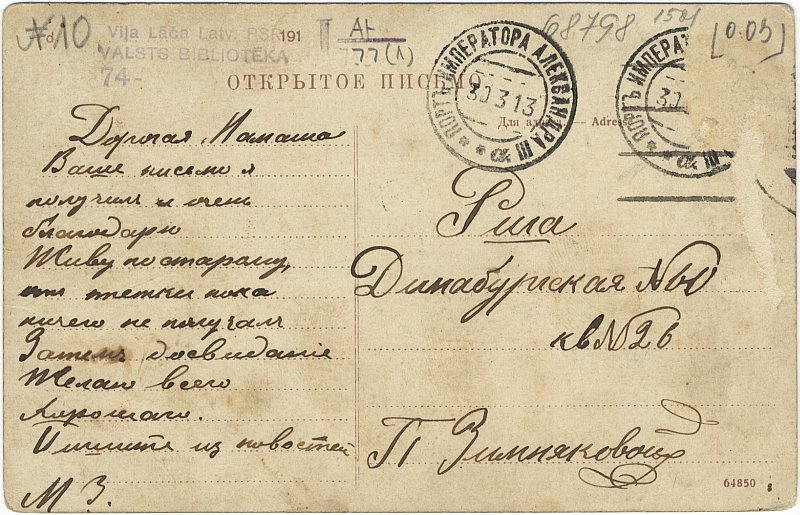 №10.
Viļa Lāča Latv. PSR
VALSTS BIBLIOTĒKA
74-
191
77(1)
68798
1501
[0.03]
ОТКРЫТОЕ ПИСЬМО
ПОРТЪ ИМПЕРАТОРА АЛЕКСАНДРА III
30 3 13
ПОРТЪ ИМПЕРАТ
30
III
Для адре — Adresse
Дорогая Мамаша
Ваше письмо я
получил и очень
благодарю
Живу по старому,
от тетки пока
ничего не получал
Затемъ досвиданіе
Желаю всего
Хорошаго.
Пишите из новостей
М З.
Рига
Динабургская №60
кв №26
П Зимняковой
64850